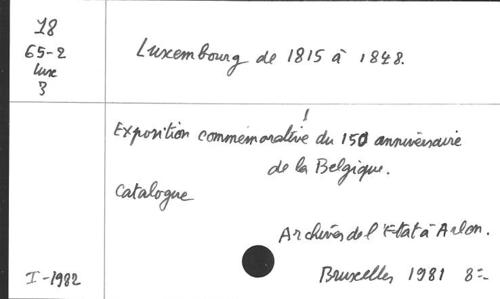 18
65-2
Lux
3
Luxembourg de 1815 à 1848.
Exposition commémorative du 150 anniversaire
de la Belgique.
Catalogue
Archives de l'Etat à Arlon.
I-1982
Bruxelles 1981 8=